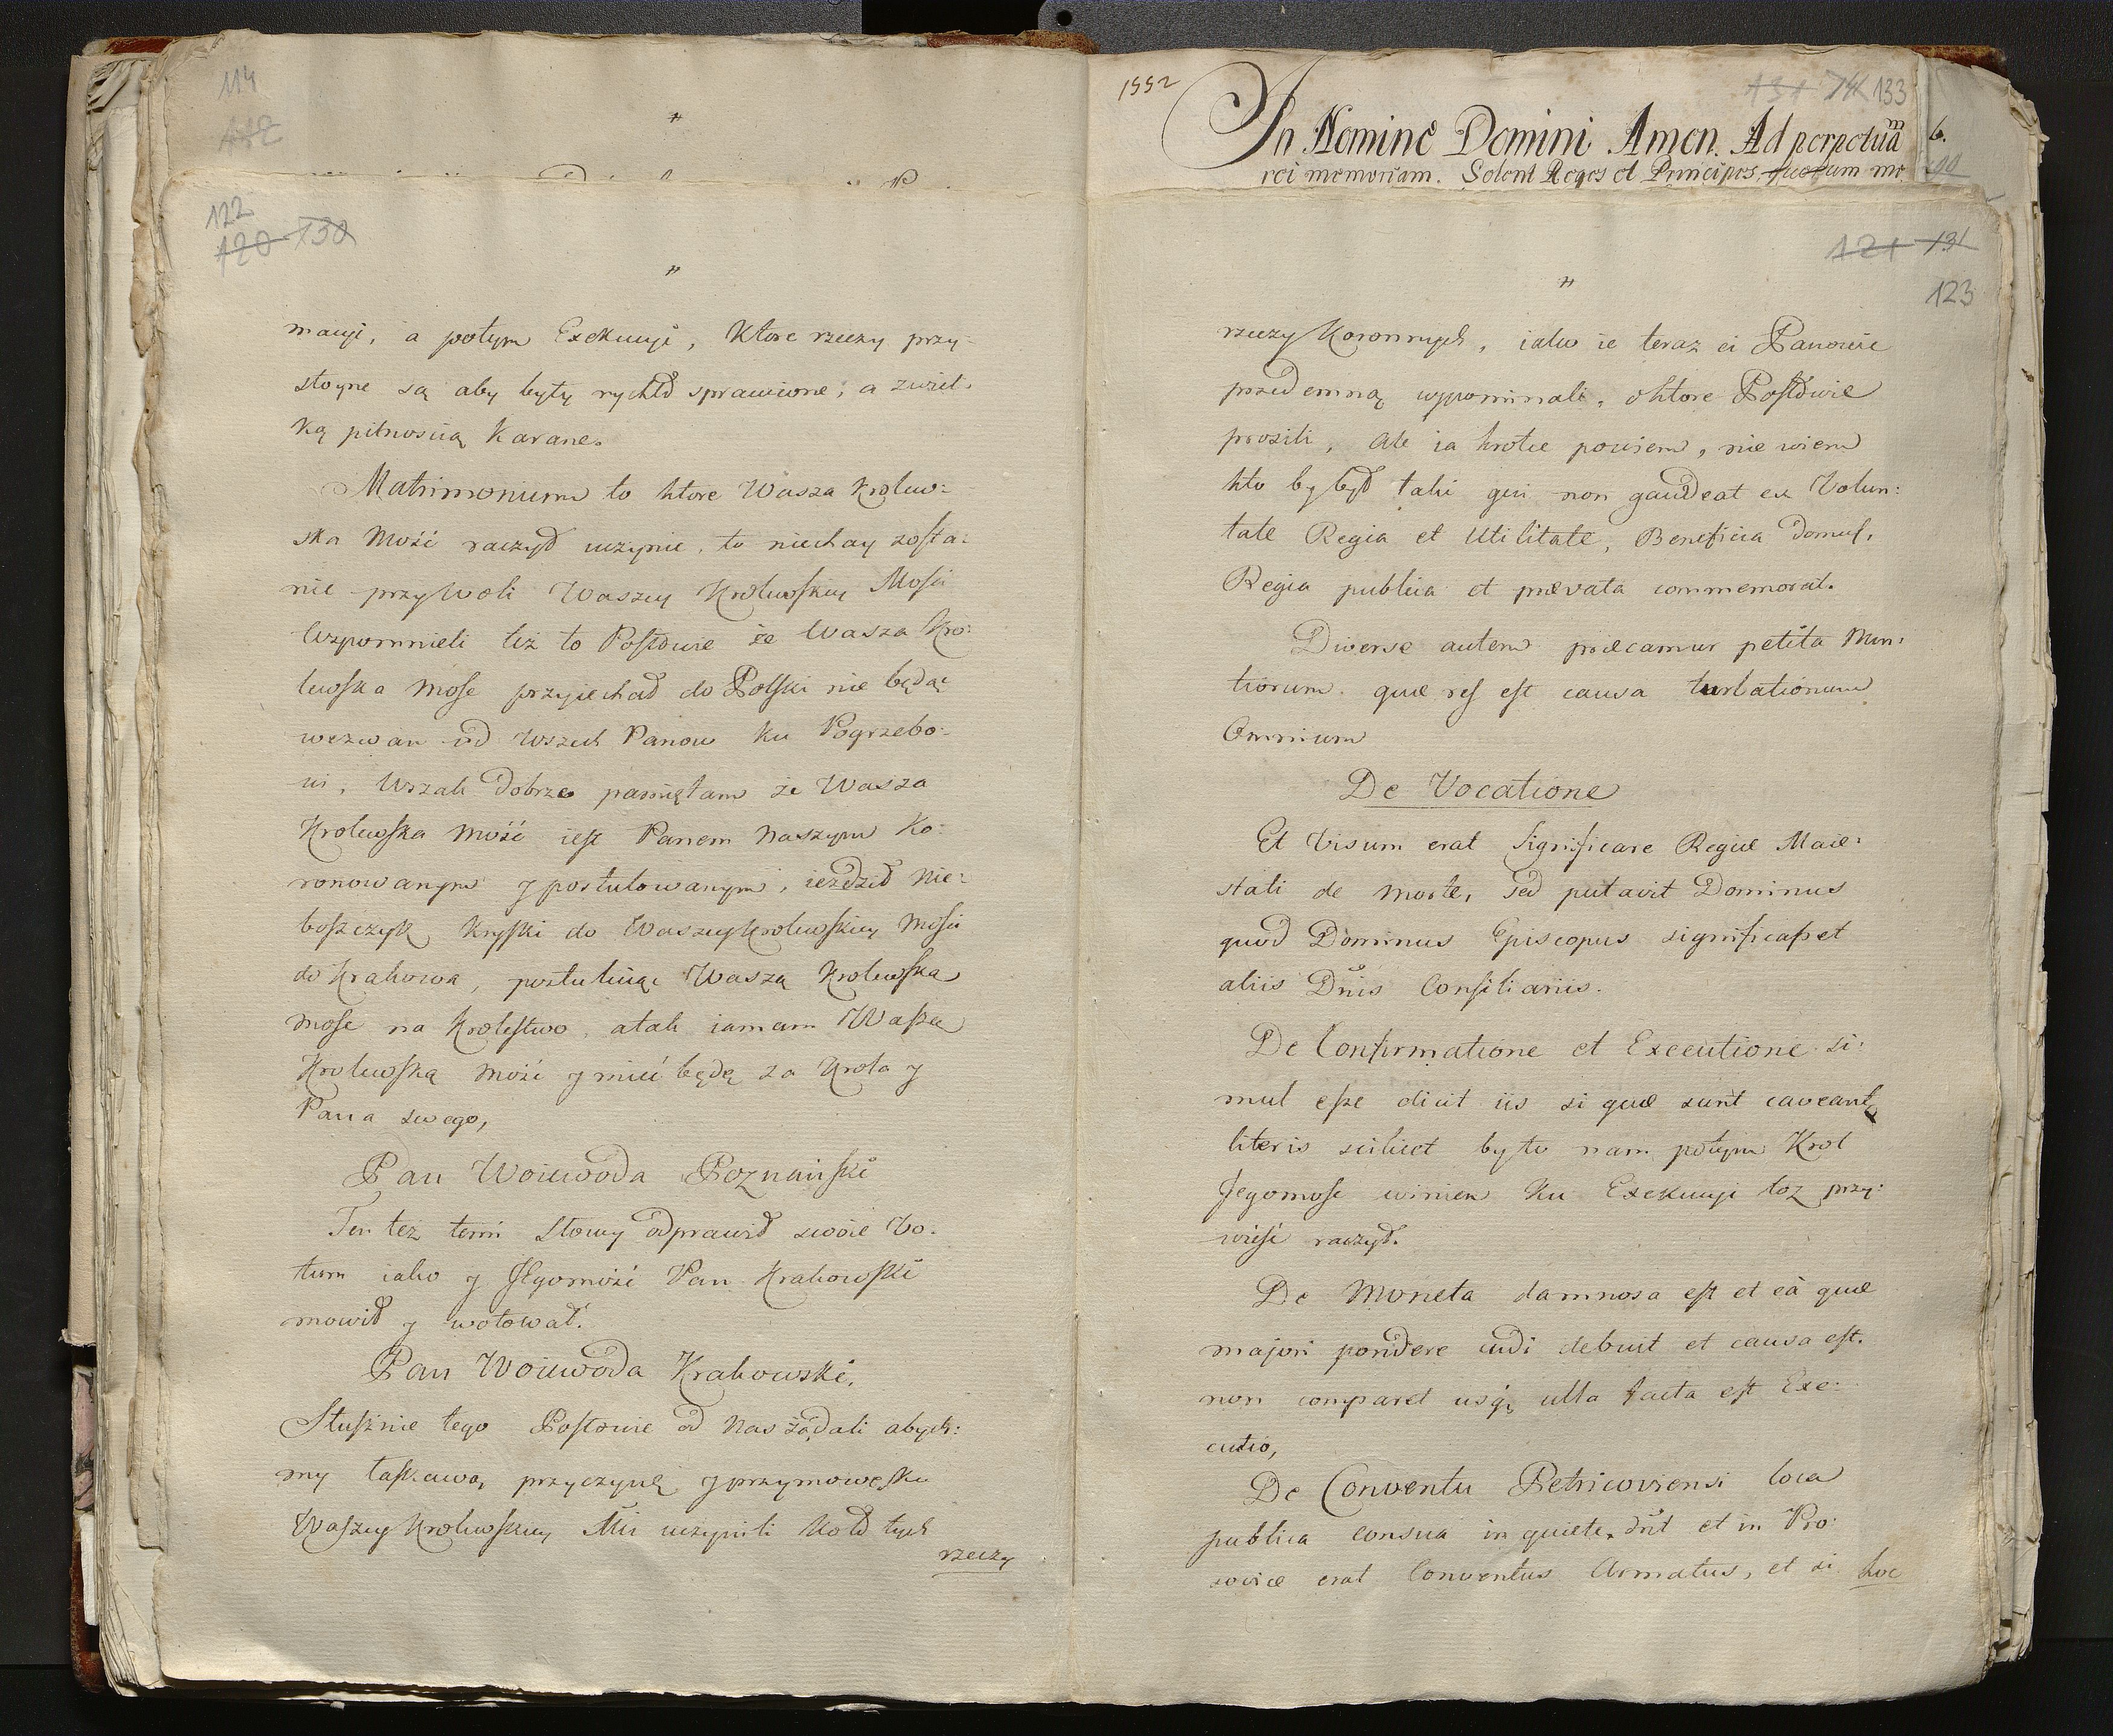 114
112
"
122
120 130
"
macyi, a potym Exekucyi, Ktore rzeczy przy-
stoyne są aby były rychło sprawione, a zwiel-
ką pilnoscią Karane.
Matrimonium to ktore Wasza Krolew:
ska Mość raczył uczynic, to niechay zosta:
nie przy Woli Waszey Krolewskiey Mości
Wzpomnieli też to Posłowie że Wasza Kro:
lewska Mosc przyiechał do Polski nie będąc
wezwan od wszech Panow ku Pogrzebo:
wi, Wszak dobrze pamiętam że Wasza
Krolewska Mość iest Panem Naszym Ko:
ronowanym y postulowanym, iezdził Nie:
boszczyk Kryski do Waszey Krolewskiey Mości
do Krakowa, postuluiąc Waszą Krolewska
Mosc na Krolestwo, a tak ia mam Waszą
Krolewską Mość y mieć będę za Krola y
Pana swego,
Pan Woiewoda Poznański
Ten też temi Słowy odprawił swoie Vo-
tum iako y Jegomość Pan Krakowski
mowił y wotował.
Pan Woiewoda Krakowski,
Słusznie tego Posłowie od Nas żądali abych:
my łaskawą przyczynę y przymowę ku
Waszey Krolewskiey Mci uczynili koło tych
rzeczy
1552
131 74 133
In Nomine Domini Amen. Ad perpetuam
rei memoriam. Solent Reges et Principes quorum me
6.
90
121 131
123
"
rzeczy Koronnych, iako ie teraz ci Panowie
przedemną wypominali, o ktore Posłowie
prosili, Ale ia krotce powiem, nie wiem
kto by był taki qui non gaudeat ex Volun:
tate Regia et Utilitate, Beneficia Domus,
Regia publica et prævata commemorat.
Diverse autem præcamur petita Nun:
tiorum. quæ res est causa turbationum
Omnium
De Vocatione
Et Visum erat significare Regiæ Maie:
stati de morte, sed putavit Dominus
quod Dominus Episcopus significasset
aliis Dnis Consiliariis.
De Confirmatione et Executione si:
mul esse dicit iis si quæ sunt caveant
literis scilicet by to nam potym Krol
Jegomosc winien ku Exekucyi toz przy-
wiesć raczył.
De Moneta damnosa est et ea quæ
majori pondere cudi debuit et causa est.
non comparet usq, ulla facta est Exe:
cutio,
De Conventu Petricoviensi loca
publica consua in quiete, dnt et in Pro:
sovice erat Conventus Armatus, et si
hoc